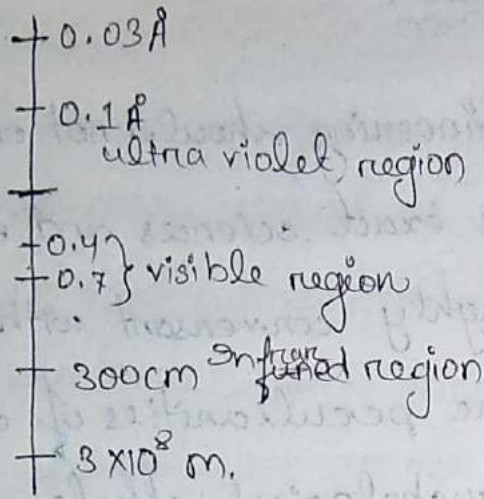 0.03Å
0.1Å
ultra violet region
0.4
0.7 } visible region
300cm Infrared region
3×10⁸ m.